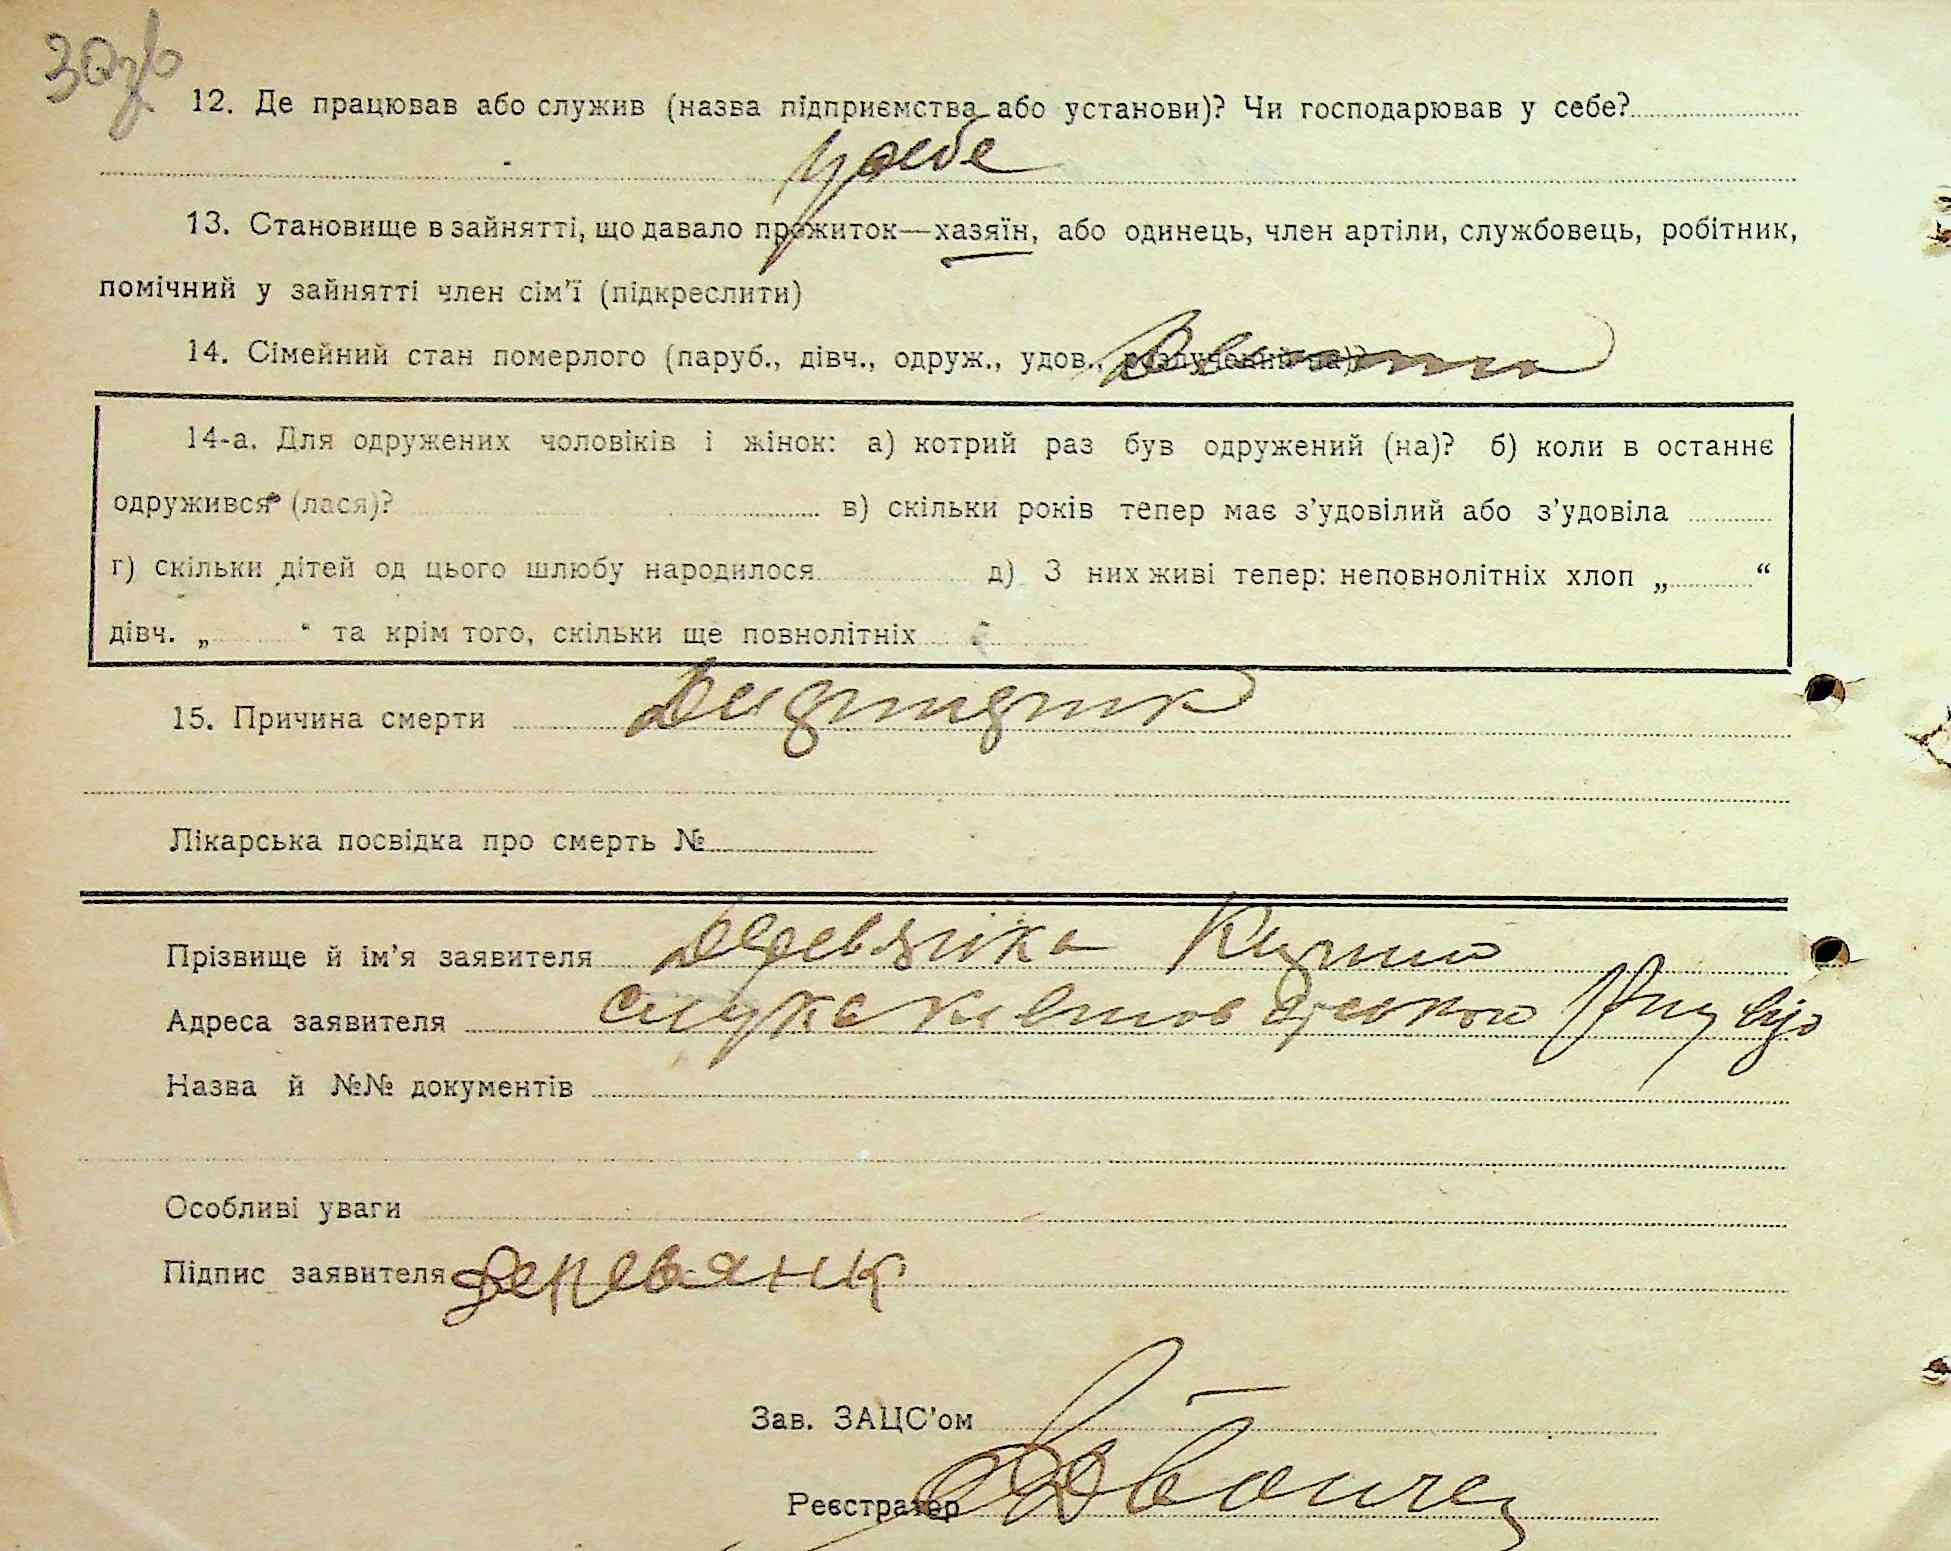 30зв
12. Де працював або служив (назва підприємства або установи)? Чи господарював у себе?
у себе
13. Становище в зайнятті, що давало прожиток—хазяїн, або одинець, член артіли, службовець, робітник,
помічний у зайнятті член сім'ї (підкреслити)
14. Сімейний стан померлого (паруб., дівч., одруж., удов., розлучений-на)?
14-а. Для одружених чоловіків і жінок: а) котрий раз був одружений (на)? б) коли в останнє
одружився (лася)? в) скільки років тепер має з'удовілий або з'удовіла
г) скільки дітей од цього шлюбу народилося д) З них живі тепер: неповнолітніх хлоп „ “
дівч. „ “ та крім того, скільки ще повнолітніх
15. Причина смерти
Лікарська посвідка про смерть №
Прізвище й ім'я заявителя Деревянка
Адреса заявителя
Назва й №№ документів
Особливі уваги
Підпис заявителя Деревянк
Зав. ЗАЦС'ом
Реєстратор